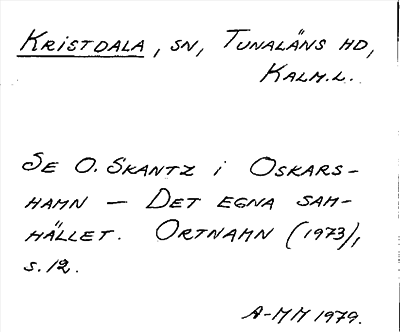 KRISTDALA, SN, TUNALÄNS HD,
KALM.L.
SE O. SKANTZ i OSKARS-
HAMN – DET EGNA SAM-
HÄLLET. ORTNAMN (1973),
s. 12.
A-MM 1979.